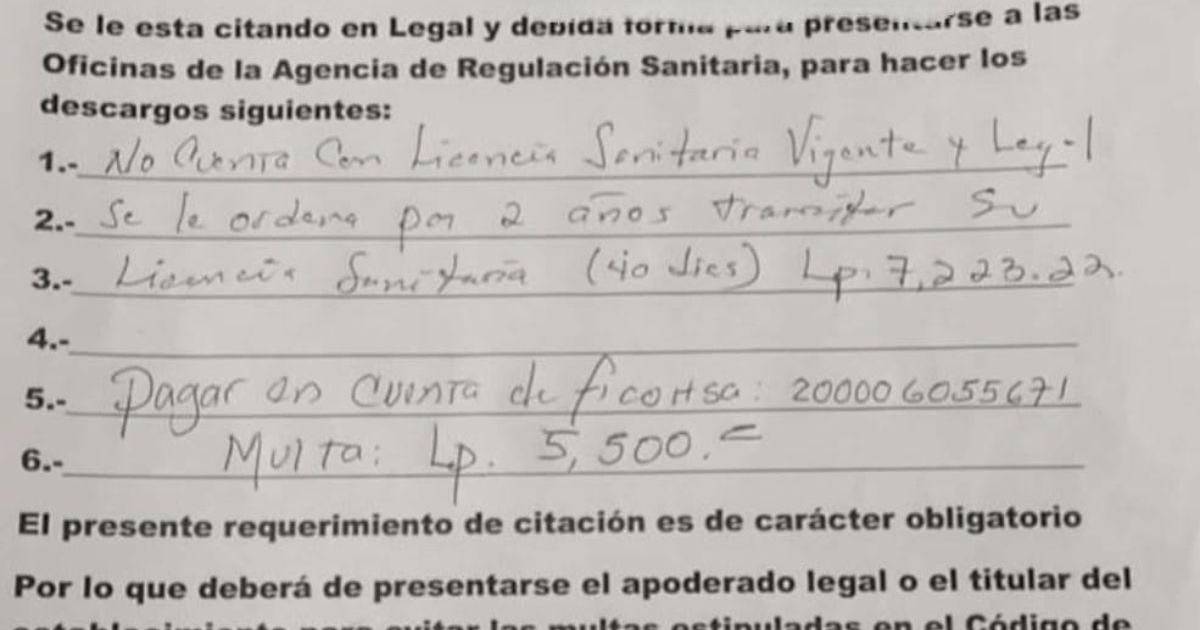 Se le esta citando en Legal y debida forma para presentarse a las
Oficinas de la Agencia de Regulación Sanitaria, para hacer los
descargos siguientes:
1.- No Cuenta Con Licencia Sanitaria Vigente y Legal
2.- Se le ordena por 2 años tramitar Su
3.- Licencia Sanitaria (40 dies) Lp. 7,223.22.
4.-
5.- Pagar en Cuenta de ficoHsa: 200006055671
6.- Multa: Lp. 5,500.=
El presente requerimiento de citación es de carácter obligatorio
Por lo que deberá de presentarse el apoderado legal o el titular del
establecimiento para evitar las multas estipuladas en el Código de